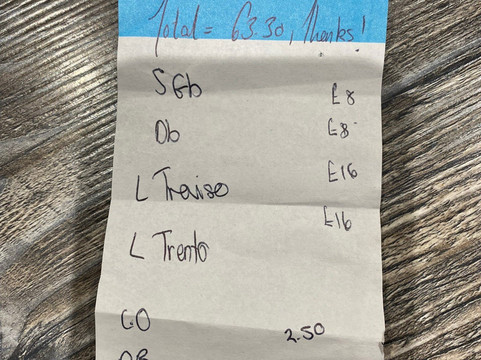 Total = 63.30, Thanks!
S Gb £8
Db £8
L Treviso £16
L Trento £16
GO 2.50